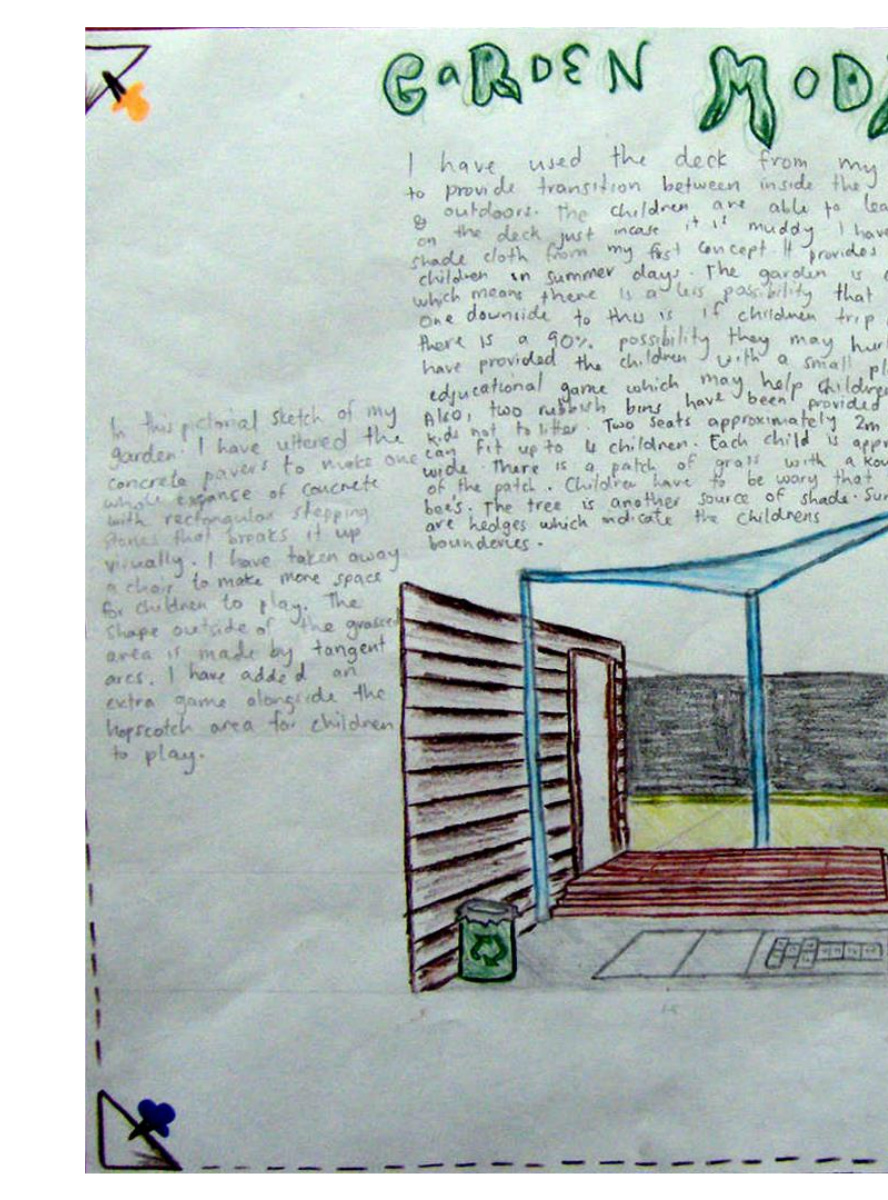 GARDEN MOD
I have used the deck from my
to provide transition between inside the
& outdoors. The children are able to lea
on the deck just incase it is muddy I have
shade cloth from my first concept. It provides
children in summer days. The garden is
which means there is a less possibility that
One downside to this is if children trip
there is a 90% possibility they may hur
have provided the children with a small pl
edjucational game which may help children
Also, two rubbish bins have been provided
kids not to litter. Two seats approximately 2m
can fit up to 4 children. Each child is appr
wide. There is a patch of grass with a kow
of the patch. Children have to be wary that
bee's. The tree is another source of shade. Sur
are hedges which indicate the childrens
bounderies.
In this pictorial sketch of my
garden I have altered the
concrete pavers to make one
whole expanse of concrete
with rectangular stepping
stones that breaks it up
visually. I have taken away
a chair to make more space
for children to play. The
shape outside of the grassed
area is made by tangent
arcs. I have added an
extra game alongside the
hopscotch area for children
to play.